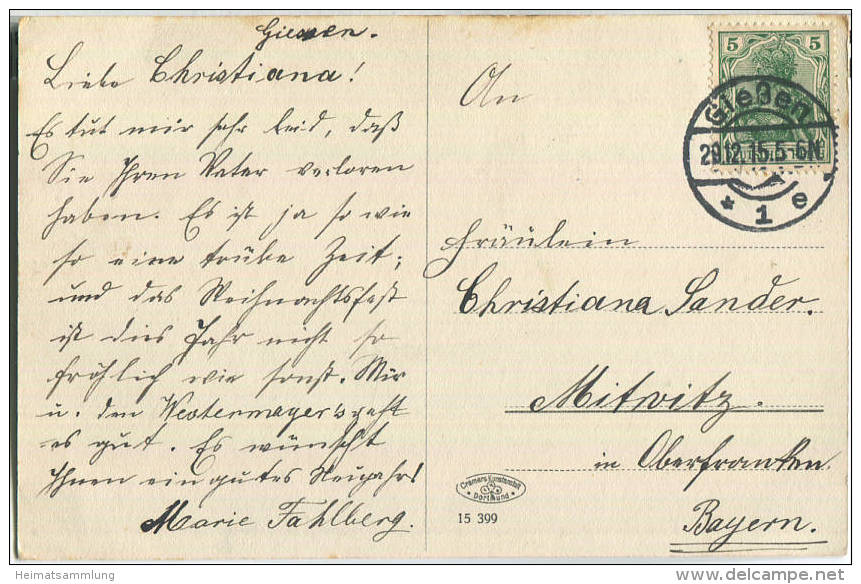 Giessen.
Liebe Christiana!
Es tut mir sehr leid, daß
Sie Ihren Vater verloren
haben. Es ist ja so wie
so eine trübe Zeit;
und das Weihnachtsfest
ist dies Jahr nicht so
fröhlich wie sonst. Mir
u. den Westermayer's geht
es gut. Es wünscht
Ihnen ein gutes Neujahr!
Marie Fahlberg.
An
Fräulein
Christiana Sander.
Mitwitz.
in Oberfranken.
Bayern.
5 5
Gießen
29.12.15.5-6N
* 1 e
Cramers Kunstanstalt
* Dortmund *
15 399
Heimatsammlung
delcampe.net